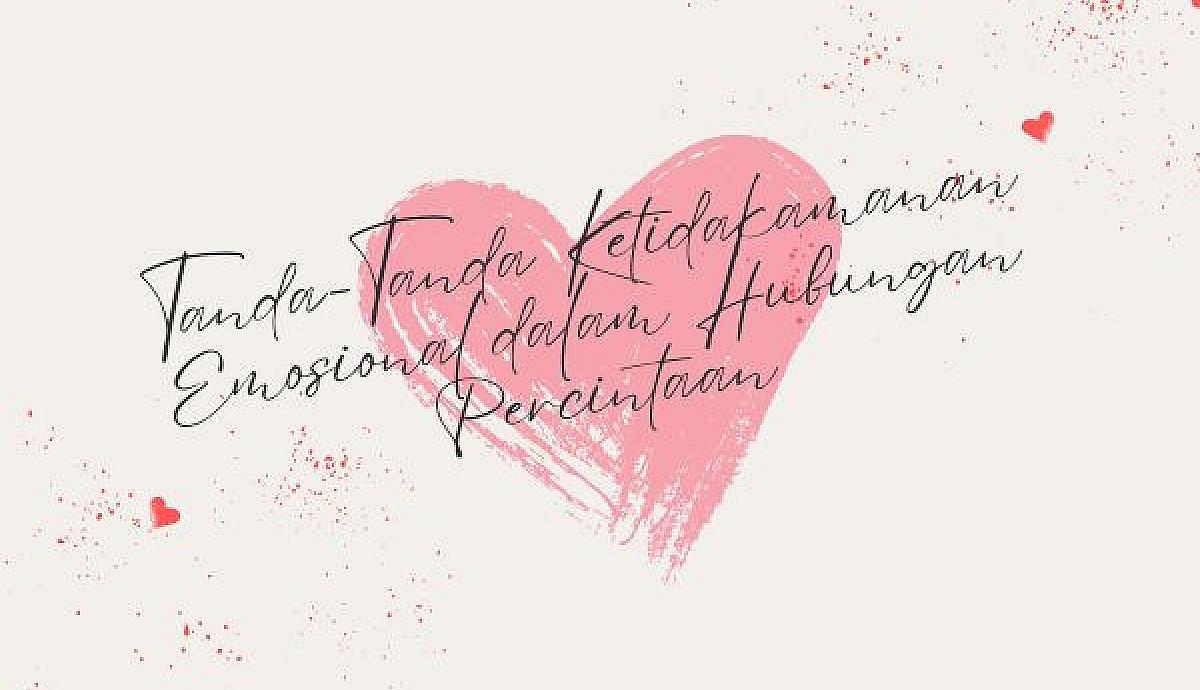 Tanda-Tanda Ketidakamanan
Emosional dalam Hubungan
Percintaan